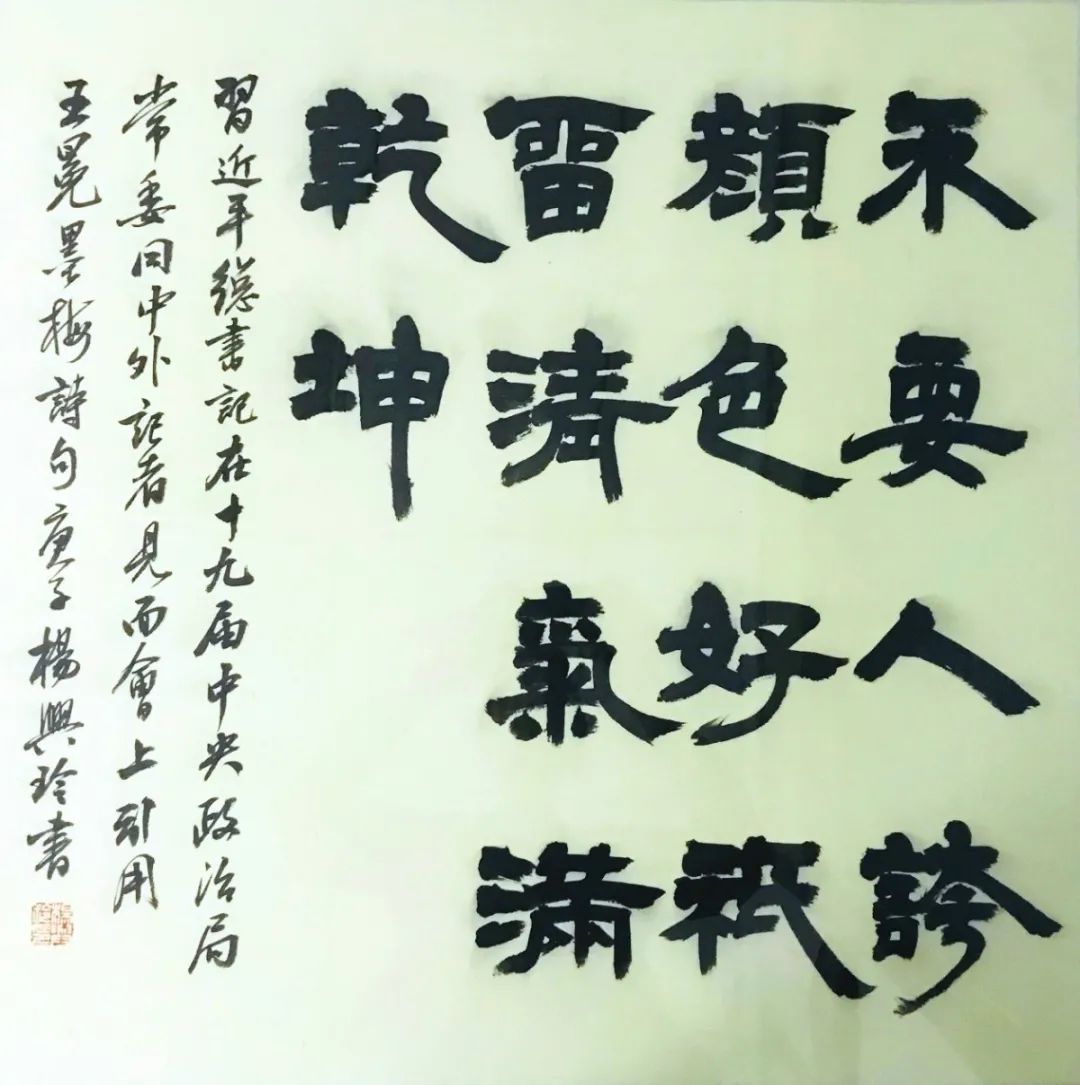 不要人誇
顔色好祇
留清氣滿
乾坤
習近平總書記在十九届中央政治局
常委同中外記者見面會上引用
王冕墨梅詩句庚子楊興玲書